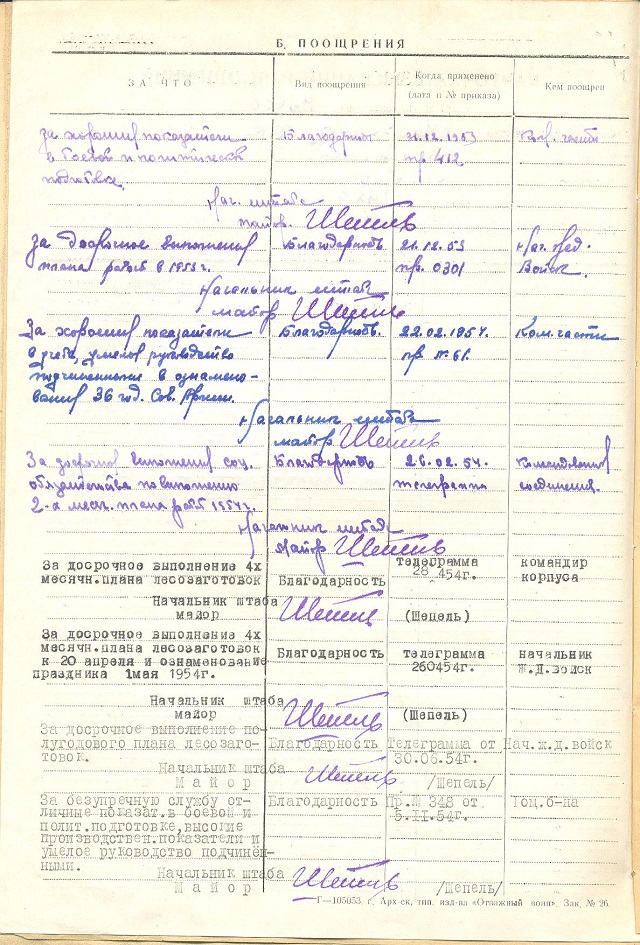 Б. ПООЩРЕНИЯ
ЗА ЧТО Вид поощрения Когда применено (дата и № приказа) Кем поощрен
за хорошие показатели Благодарность 31.12.1953 Ком. части
в боевой и политической пр 412
подготовке
Нач. штаба
майор Шепель
За досрочное выполнение Благодарность 21.12.53 Нач. жед.
плана работ в 1953 г. пр. 0301 Войск.
Начальник штаба
майор Шепель
За хорошие показатели Благодарность. 22.02.1954. Ком. части
в учебе, умелое руководство пр. № 61.
подчиненными в ознамено-
вании 36 год. Сов. Армии.
Начальник штаба
майор Шепель
За досрочное выполнение соц. Благодарность 26.02.54. Командования
обязательства по выполнению телеграмма соединения.
2-х месяч. плана работ 1954 г.
Начальник штаба
майор Шепель
За досрочное выполнение 4х телеграмма командир
месячн.плана лесозаготовок Благодарность 28 454г. корпуса
Начальник штаба
майор Шепель (Шепель)
За досрочное выполнение 4х
месячн.плана лесозаготовок Благодарность телеграмма начальник
к 20 апреля и ознаменование 260454г. Ж.Д.войск
праздника 1мая 1954г.
Начальник штаба
майор Шепель (Шепель)
За досрочное выполнение по- Благодарность Телеграмма от Нач.ж.д.войск
лугодового плана лесозаго- 30.06.54г.
товок.
Начальник штаба
Майор Шепель /Шепель/
За безупречную службу от- Благодарность Пр.№ 348 от Том.б-на
личные показат.в боевой и 5.II.54г.
полит.подготовке,высокие
производствен.показатели и
умелое руководство подчинён-
ными.
Начальник штаба
Майор Шепель /Шепель/
Г—105053 г. Арх-ск, тип. изд-ва «Отважный воин», Зак. № 26.